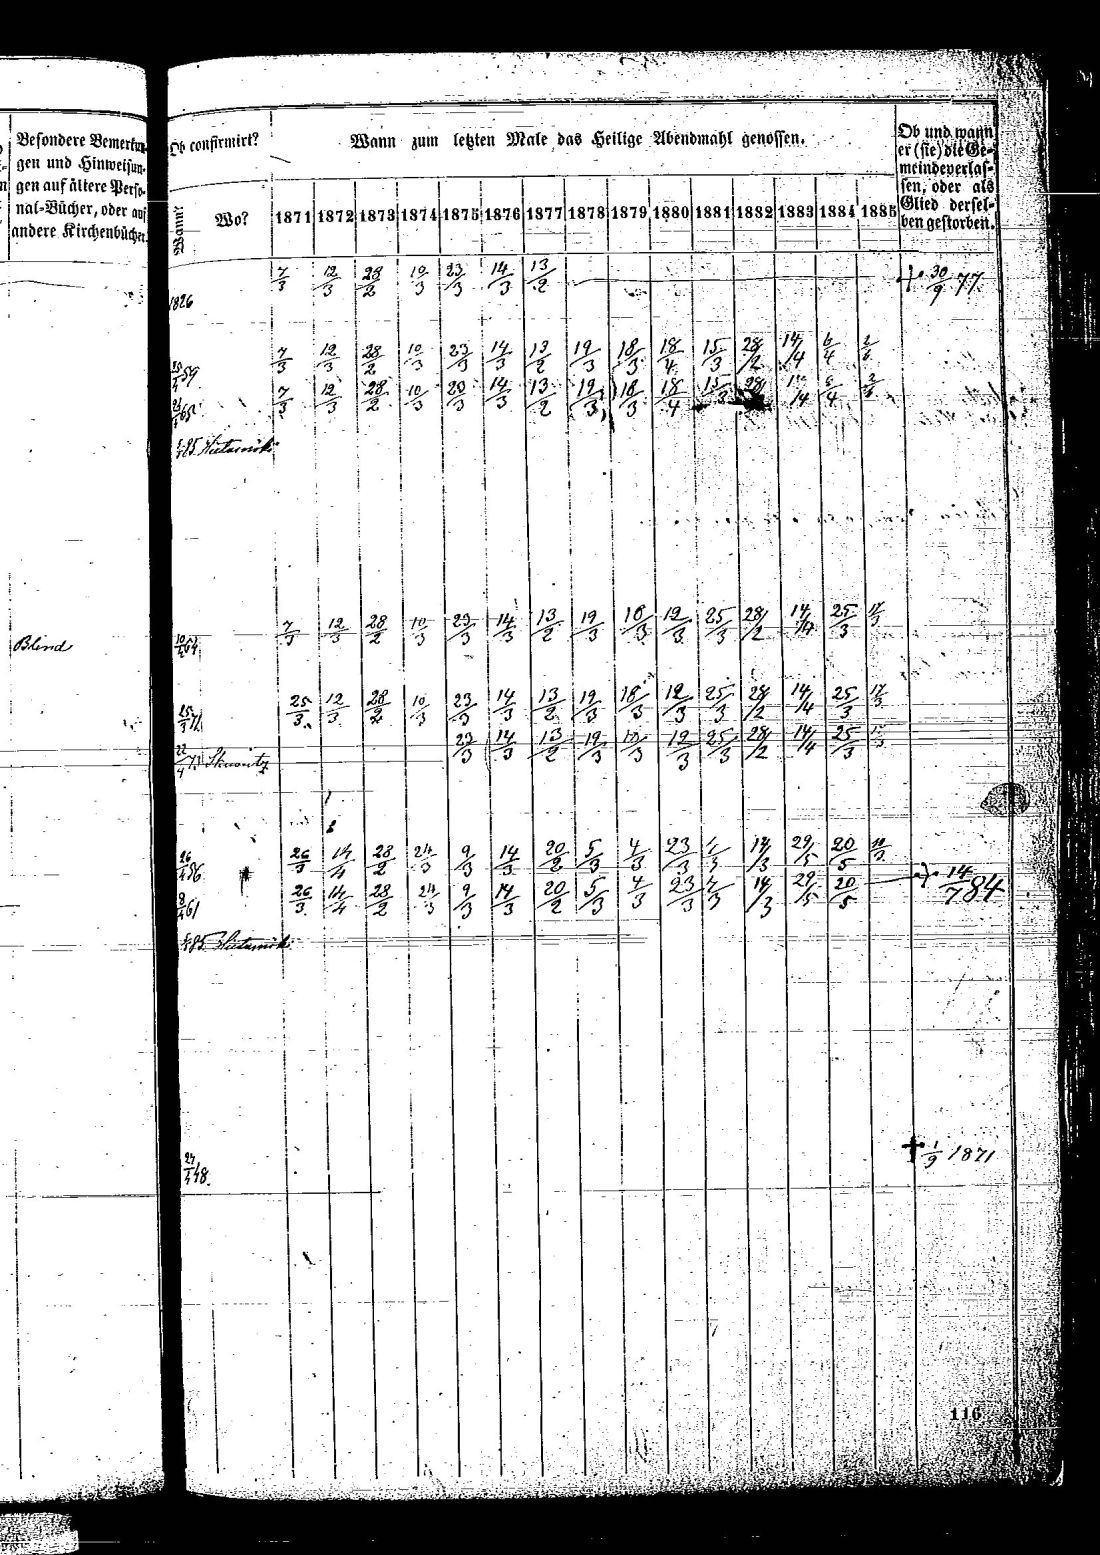 Besondere Bemerkun-
gen und Hinweisun-
gen auf ältere Perso-
nal-Bücher, oder auf
andere Kirchenbücher.
Ob confirmirt?
Wann?
Wo?
Wann zum letzten Male das Heilige Abendmahl genossen.
1871 1872 1873 1874 1875 1876 1877 1878 1879 1880 1881 1882 1883 1884 1885
Ob und wann
er (sie) die Ge-
meinde verlas-
sen, oder als
Glied dersel-
ben gestorben.
1826 7/3 12/3 28/2 10/3 23/3 14/3 13/2 † 30/9 77.
59 7/3 12/3 28/2 10/3 23/3 14/3 13/2 19/3 18/3 18/4 15/3 28/2 14/4 6/4
65 7/3 12/3 28/2 10/3 23/3 14/3 13/2 19/3 18/3 18/4 15/3 28 14 4
85
Blind
10/4 64 7/3 12/3 28/2 10/3 23/3 14/3 13/2 19/3 18/3 12/3 25/3 28/2 14/4 25/3 17/3
71 25/3 12/3 28/2 10/3 23/3 14/3 13/2 19/3 18/3 12/3 25/3 28/2 14/4 25/3 17/3
22/4 73 23/3 14/3 13/2 19/3 18/3 12/3 25/3 28/2 14/4 25/3
26/4 36 26/3 14/4 28/2 24/3 9/3 14/3 20/2 5/3 4/3 23/3 14/3 29/5 20/5
8/4 61 26/3 14/4 28/2 24/3 9/3 14/3 20/2 5/3 4/3 23/3 14/3 29/5 20/5 † 14/7 84
85
48. † 1/9 1871
116